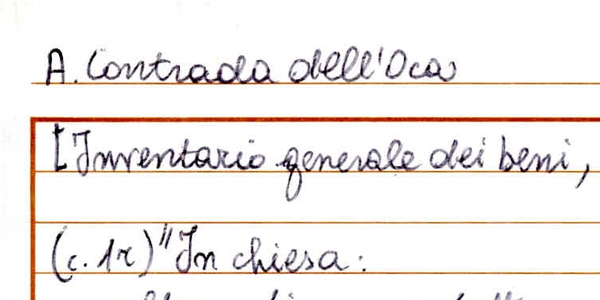 A. Contrada dell'Oca
[Inventario generale dei beni,
(c. 1r) "In chiesa: